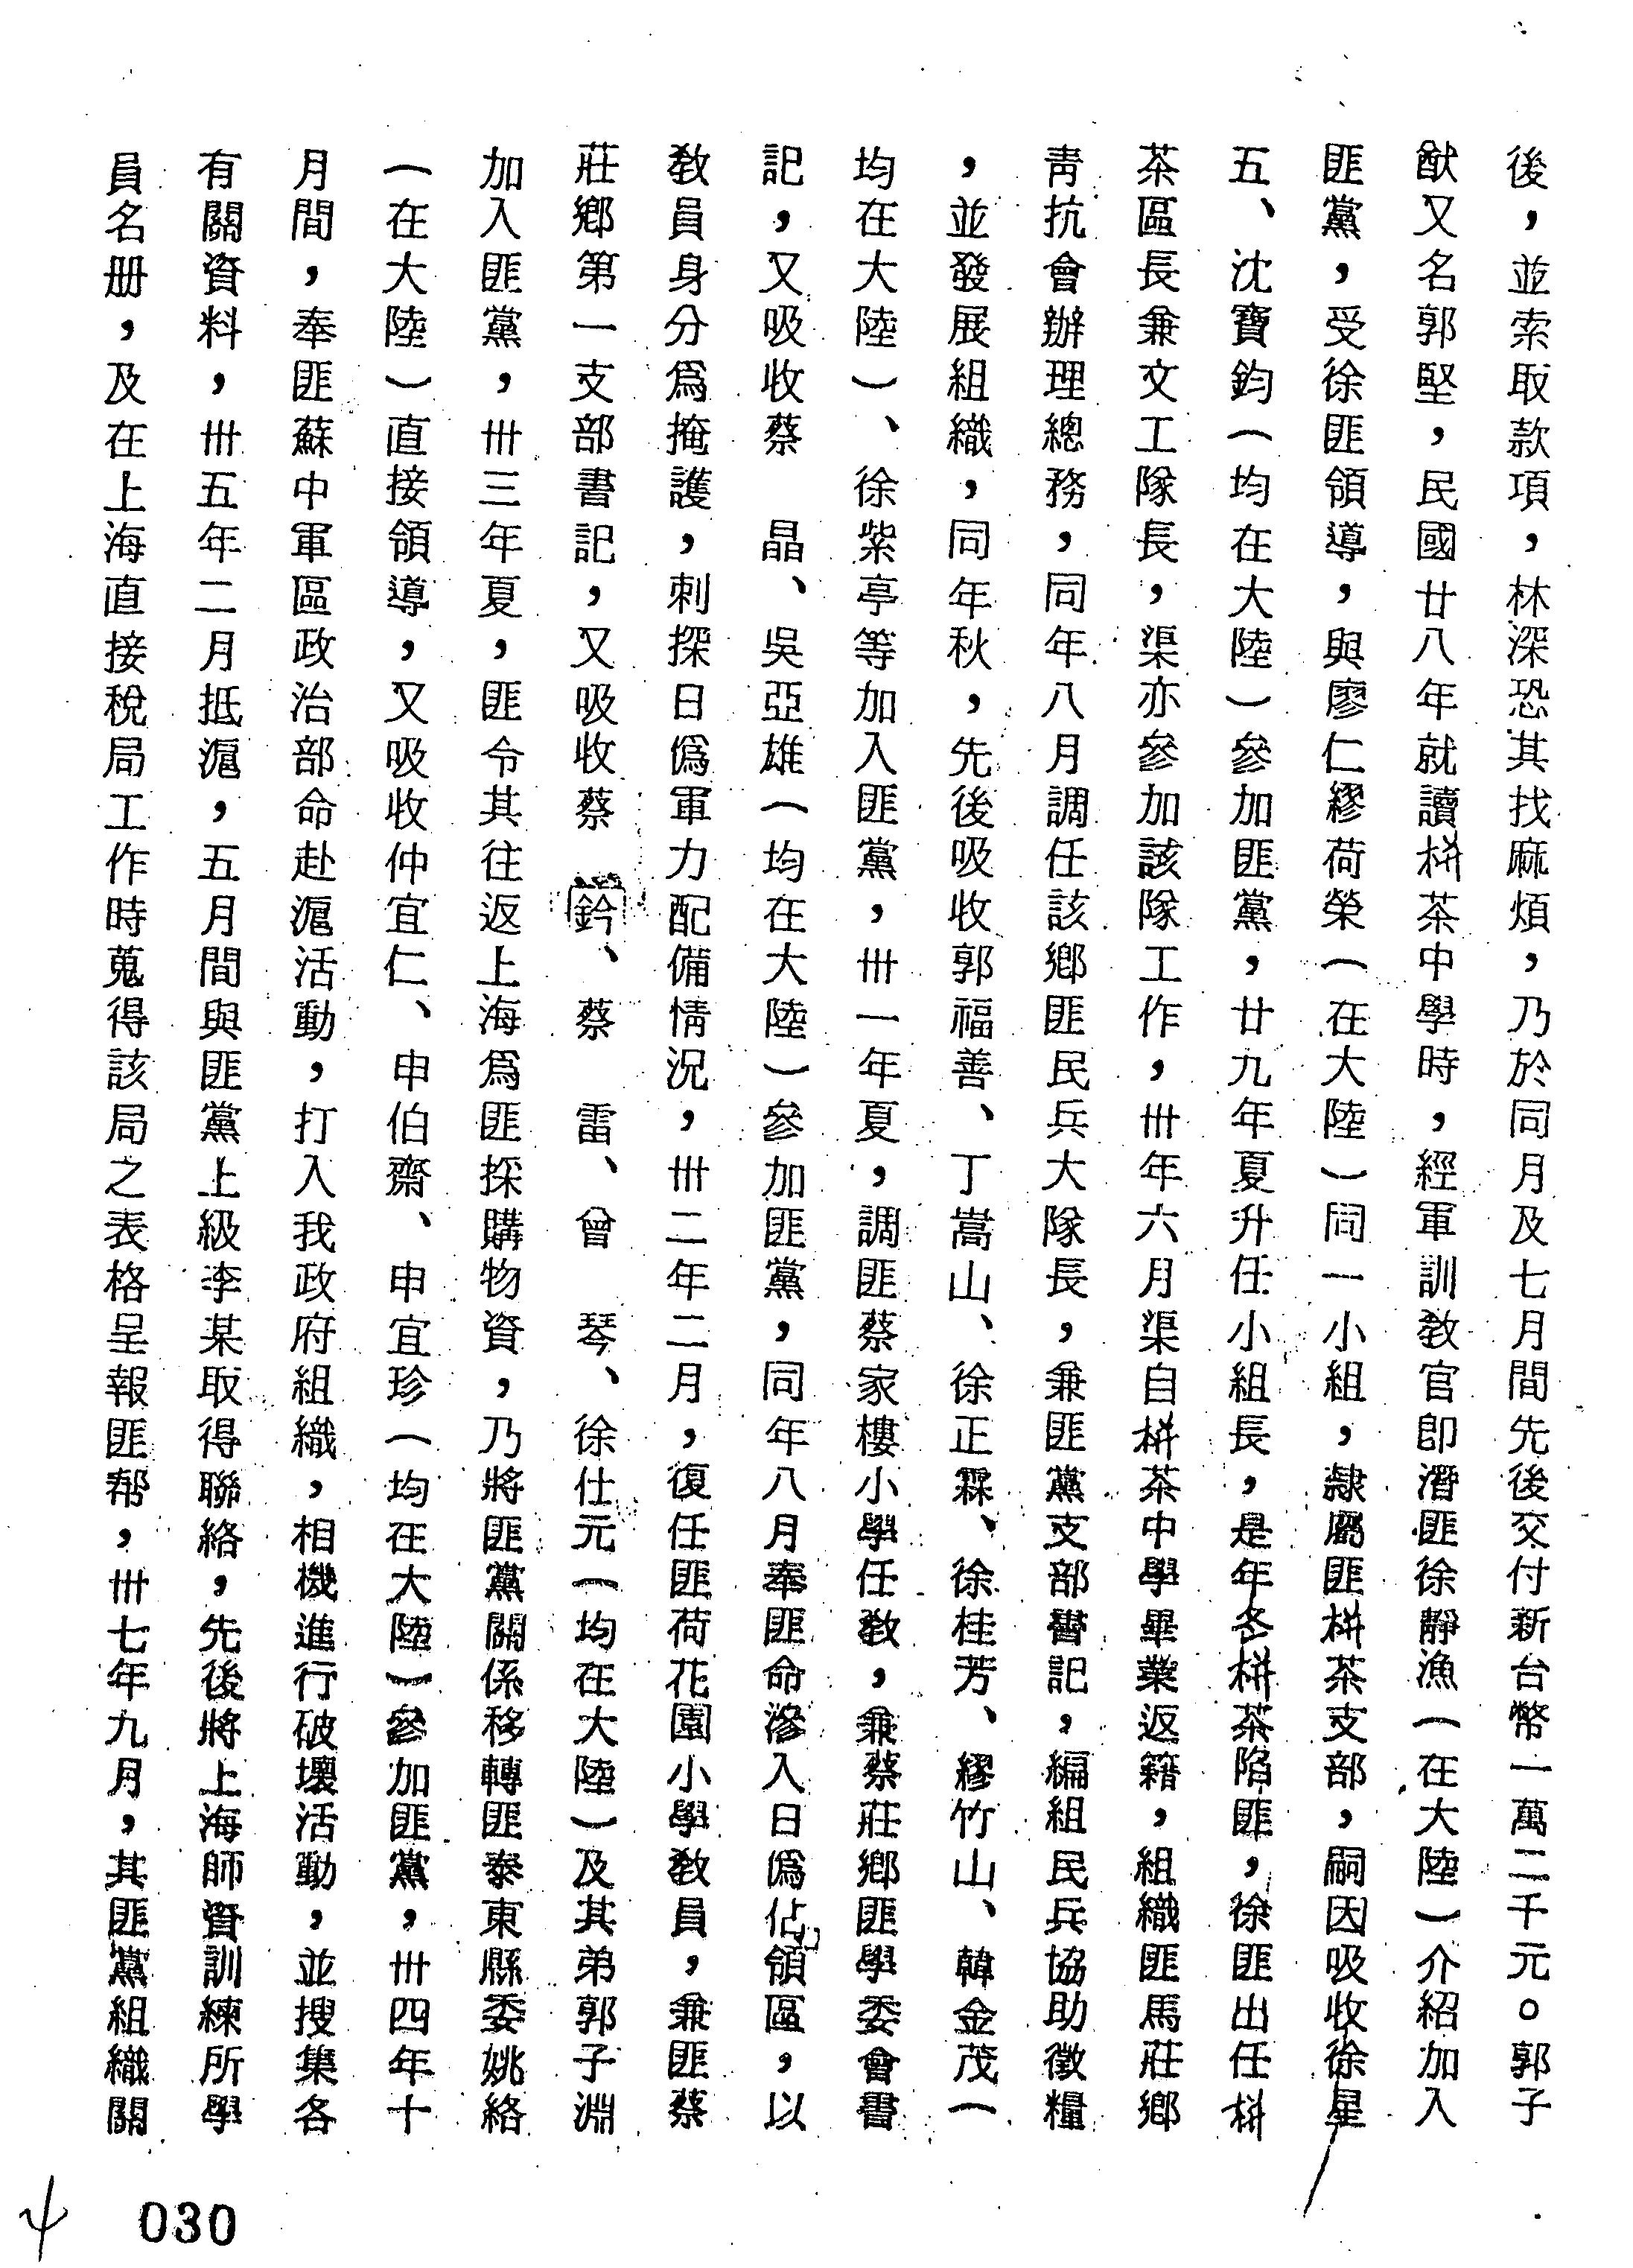 後，並索取款項，林深恐其找麻煩，乃於同月及七月間先後交付新台幣一萬二千元。郭子
猷又名郭堅，民國廿八年就讀栟茶中學時，經軍訓教官卽潛匪徐靜漁（在大陸）介紹加入
匪黨，受徐匪領導，與廖仁繆荷榮（在大陸）同一小組，隷屬匪栟茶支部，嗣因吸收徐星
五、沈寶鈞（均在大陸）參加匪黨，廿九年夏升任小組長，是年冬栟茶陷匪，徐匪出任栟
茶區長兼文工隊長，渠亦參加該隊工作，卅年六月渠自栟茶中學畢業返籍，組織匪馬莊鄉
靑抗會辦理總務，同年八月調任該鄉匪民兵大隊長，兼匪黨支部書記，編組民兵協助徵糧
，並發展組織，同年秋，先後吸收郭福善、丁嵩山、徐正霖、徐桂芳、繆竹山、韓金茂（
均在大陸）、徐紫亭等加入匪黨，卅一年夏，調匪蔡家樓小學任敎，兼蔡莊鄉匪學委會書
記，又吸收蔡　晶、吳亞雄（均在大陸）參加匪黨，同年八月奉匪命滲入日僞佔領區，以
敎員身分爲掩護，刺探日僞軍力配備情況，卅二年二月，復任匪荷花園小學敎員，兼匪蔡
莊鄉第一支部書記，又吸收蔡　鈐、蔡　雷、曾　琴、徐仕元（均在大陸）及其弟郭子淵
加入匪黨，卅三年夏，匪令其往返上海爲匪採購物資，乃將匪黨關係移轉匪泰東縣委姚絡
（在大陸）直接領導，又吸收仲宜仁、申伯齋、申宜珍（均在大陸）參加匪黨，卅四年十
月間，奉匪蘇中軍區政治部命赴滬活動，打入我政府組織，相機進行破壞活動，並搜集各
有關資料，卅五年二月抵滬，五月間與匪黨上級李某取得聯絡，先後將上海師資訓練所學
員名册，及在上海直接稅局工作時蒐得該局之表格呈報匪幫，卅七年九月，其匪黨組織關
030